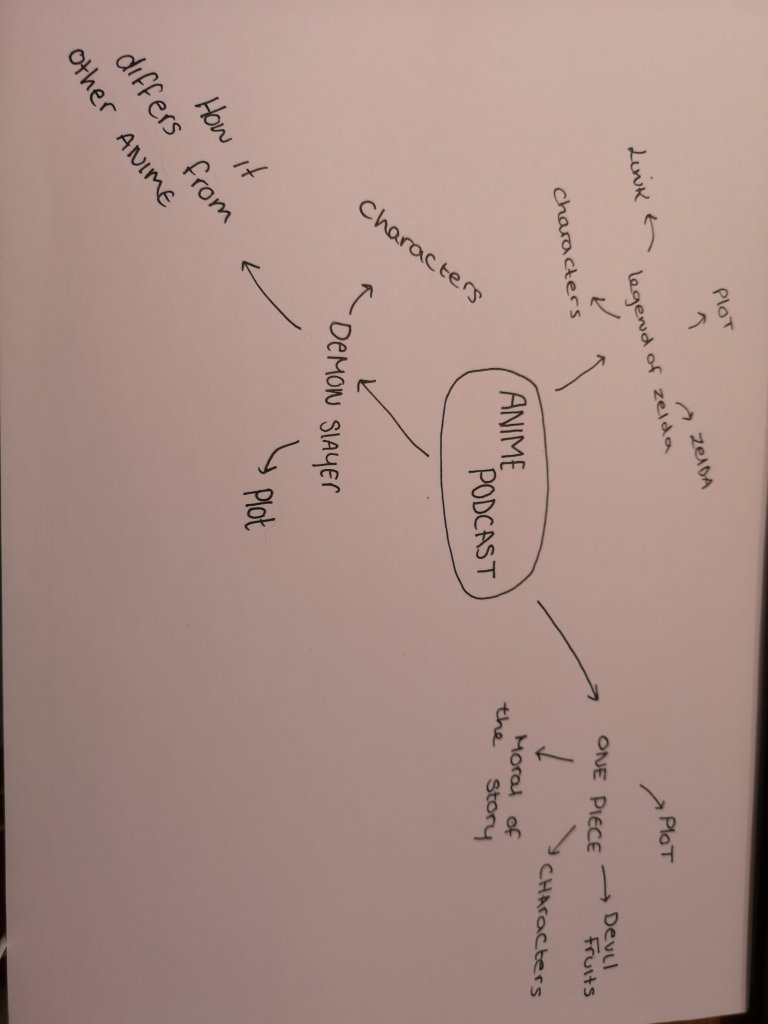 PLOT
ZelDA
Link
legend of zelda
characters
ANIME
PODCAST
PloT
ONE PIECE
Devil
fruits
CHAracters
Moral of
the story
characters
DEMON SlAyer
Plot
How it
differs from
other ANIME